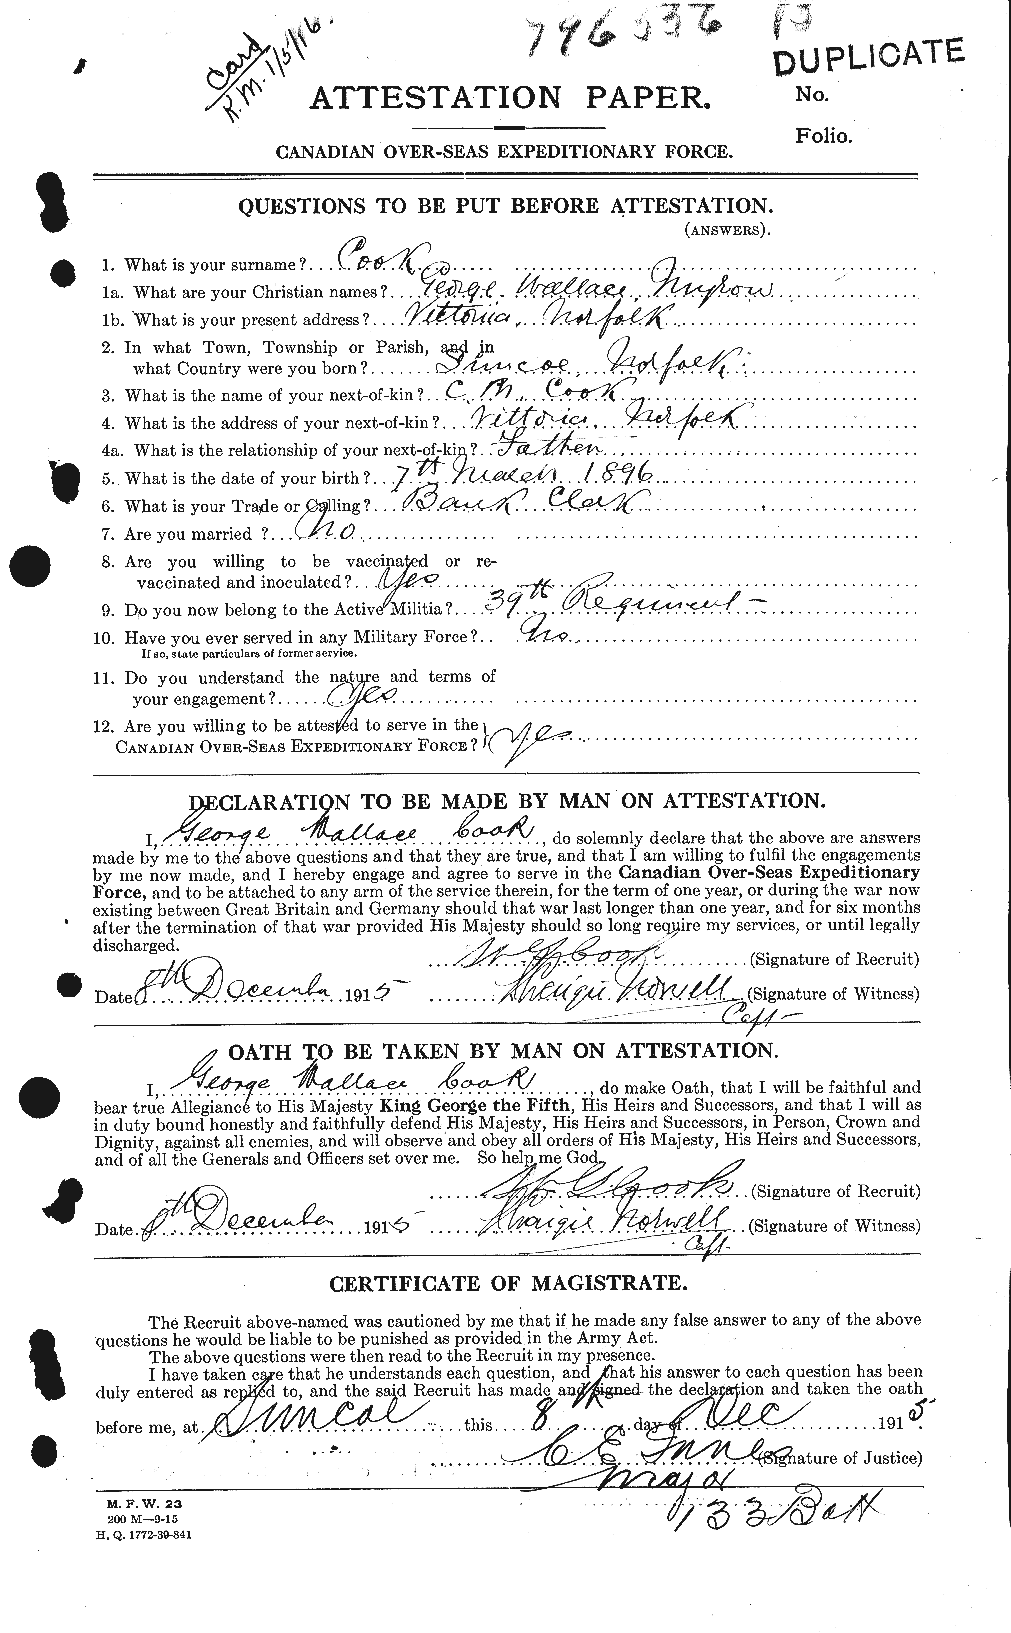 796536 B
Card
R.M. 1/5/16.
DUPLICATE
ATTESTATION PAPER.
No.
Folio.
CANADIAN OVER-SEAS EXPEDITIONARY FORCE.
QUESTIONS TO BE PUT BEFORE ATTESTATION.
(ANSWERS).
1. What is your surname? Cook
1a. What are your Christian names? George Wallace Myron
1b. What is your present address? Vittoria, Norfolk
2. In what Town, Township or Parish, and in
what Country were you born? Simcoe, Norfolk
3. What is the name of your next-of-kin? C. M. Cook
4. What is the address of your next-of-kin? Vittoria, Norfolk
4a. What is the relationship of your next-of-kin? Father
5. What is the date of your birth? 7th March 1896
6. What is your Trade or Calling? Bank Clerk
7. Are you married ? No
8. Are you willing to be vaccinated or re-
vaccinated and inoculated? Yes
9. Do you now belong to the Active Militia? 39th Regiment -
10. Have you ever served in any Military Force? No
If so, state particulars of former service.
11. Do you understand the nature and terms of
your engagement? Yes
12. Are you willing to be attested to serve in the
CANADIAN OVER-SEAS EXPEDITIONARY FORCE? Yes
DECLARATION TO BE MADE BY MAN ON ATTESTATION.
I, George Wallace Cook, do solemnly declare that the above are answers
made by me to the above questions and that they are true, and that I am willing to fulfil the engagements
by me now made, and I hereby engage and agree to serve in the Canadian Over-Seas Expeditionary
Force, and to be attached to any arm of the service therein, for the term of one year, or during the war now
existing between Great Britain and Germany should that war last longer than one year, and for six months
after the termination of that war provided His Majesty should so long require my services, or until legally
discharged.
Cook (Signature of Recruit)
Date 8th December 1915 Norwell (Signature of Witness)
Capt-
OATH TO BE TAKEN BY MAN ON ATTESTATION.
I, George Wallace Cook, do make Oath, that I will be faithful and
bear true Allegiance to His Majesty King George the Fifth, His Heirs and Successors, and that I will as
in duty bound honestly and faithfully defend His Majesty, His Heirs and Successors, in Person, Crown and
Dignity, against all enemies, and will observe and obey all orders of His Majesty, His Heirs and Successors,
and of all the Generals and Officers set over me. So help me God.
Cook (Signature of Recruit)
Date 8th December 1915 Norwell (Signature of Witness)
Capt.
CERTIFICATE OF MAGISTRATE.
The Recruit above-named was cautioned by me that if he made any false answer to any of the above
questions he would be liable to be punished as provided in the Army Act.
The above questions were then read to the Recruit in my presence.
I have taken care that he understands each question, and that his answer to each question has been
duly entered as replied to, and the said Recruit has made and signed the declaration and taken the oath
before me, at Simcoe this 8th day of Dec 1915
C E Innes (Signature of Justice)
Major
133 Batt
M. F. W. 23
200 M-9-15
H. Q. 1772-39-841